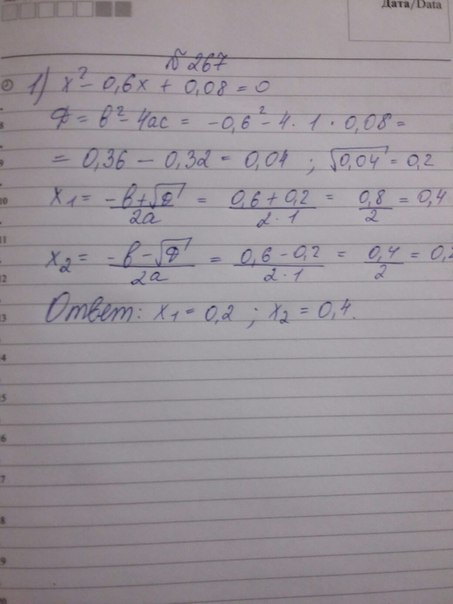 Дата/Data
№ 267
1) x² - 0,6x + 0,08 = 0
D = b² - 4ac = -0,6² - 4 · 1 · 0,08 =
= 0,36 - 0,32 = 0,04 ; √0,04 = 0,2
x1 = -b+√D/2a = 0,6 + 0,2/2·1 = 0,8/2 = 0,4
x2 = -b-√D/2a = 0,6 - 0,2/2·1 = 0,4/2 = 0,2
Ответ: x1 = 0,2 ; x2 = 0,4.